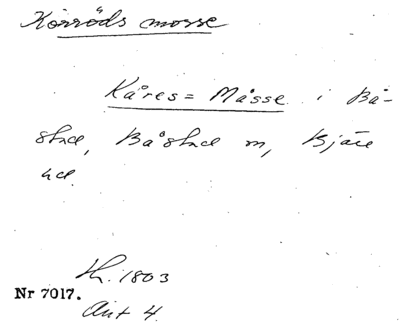 Körröds mosse
Kåres= Måsse i Bå-
stad, Båstad m, Bjäre
hd.
H. 1803
Nr 7017.
Akt 4